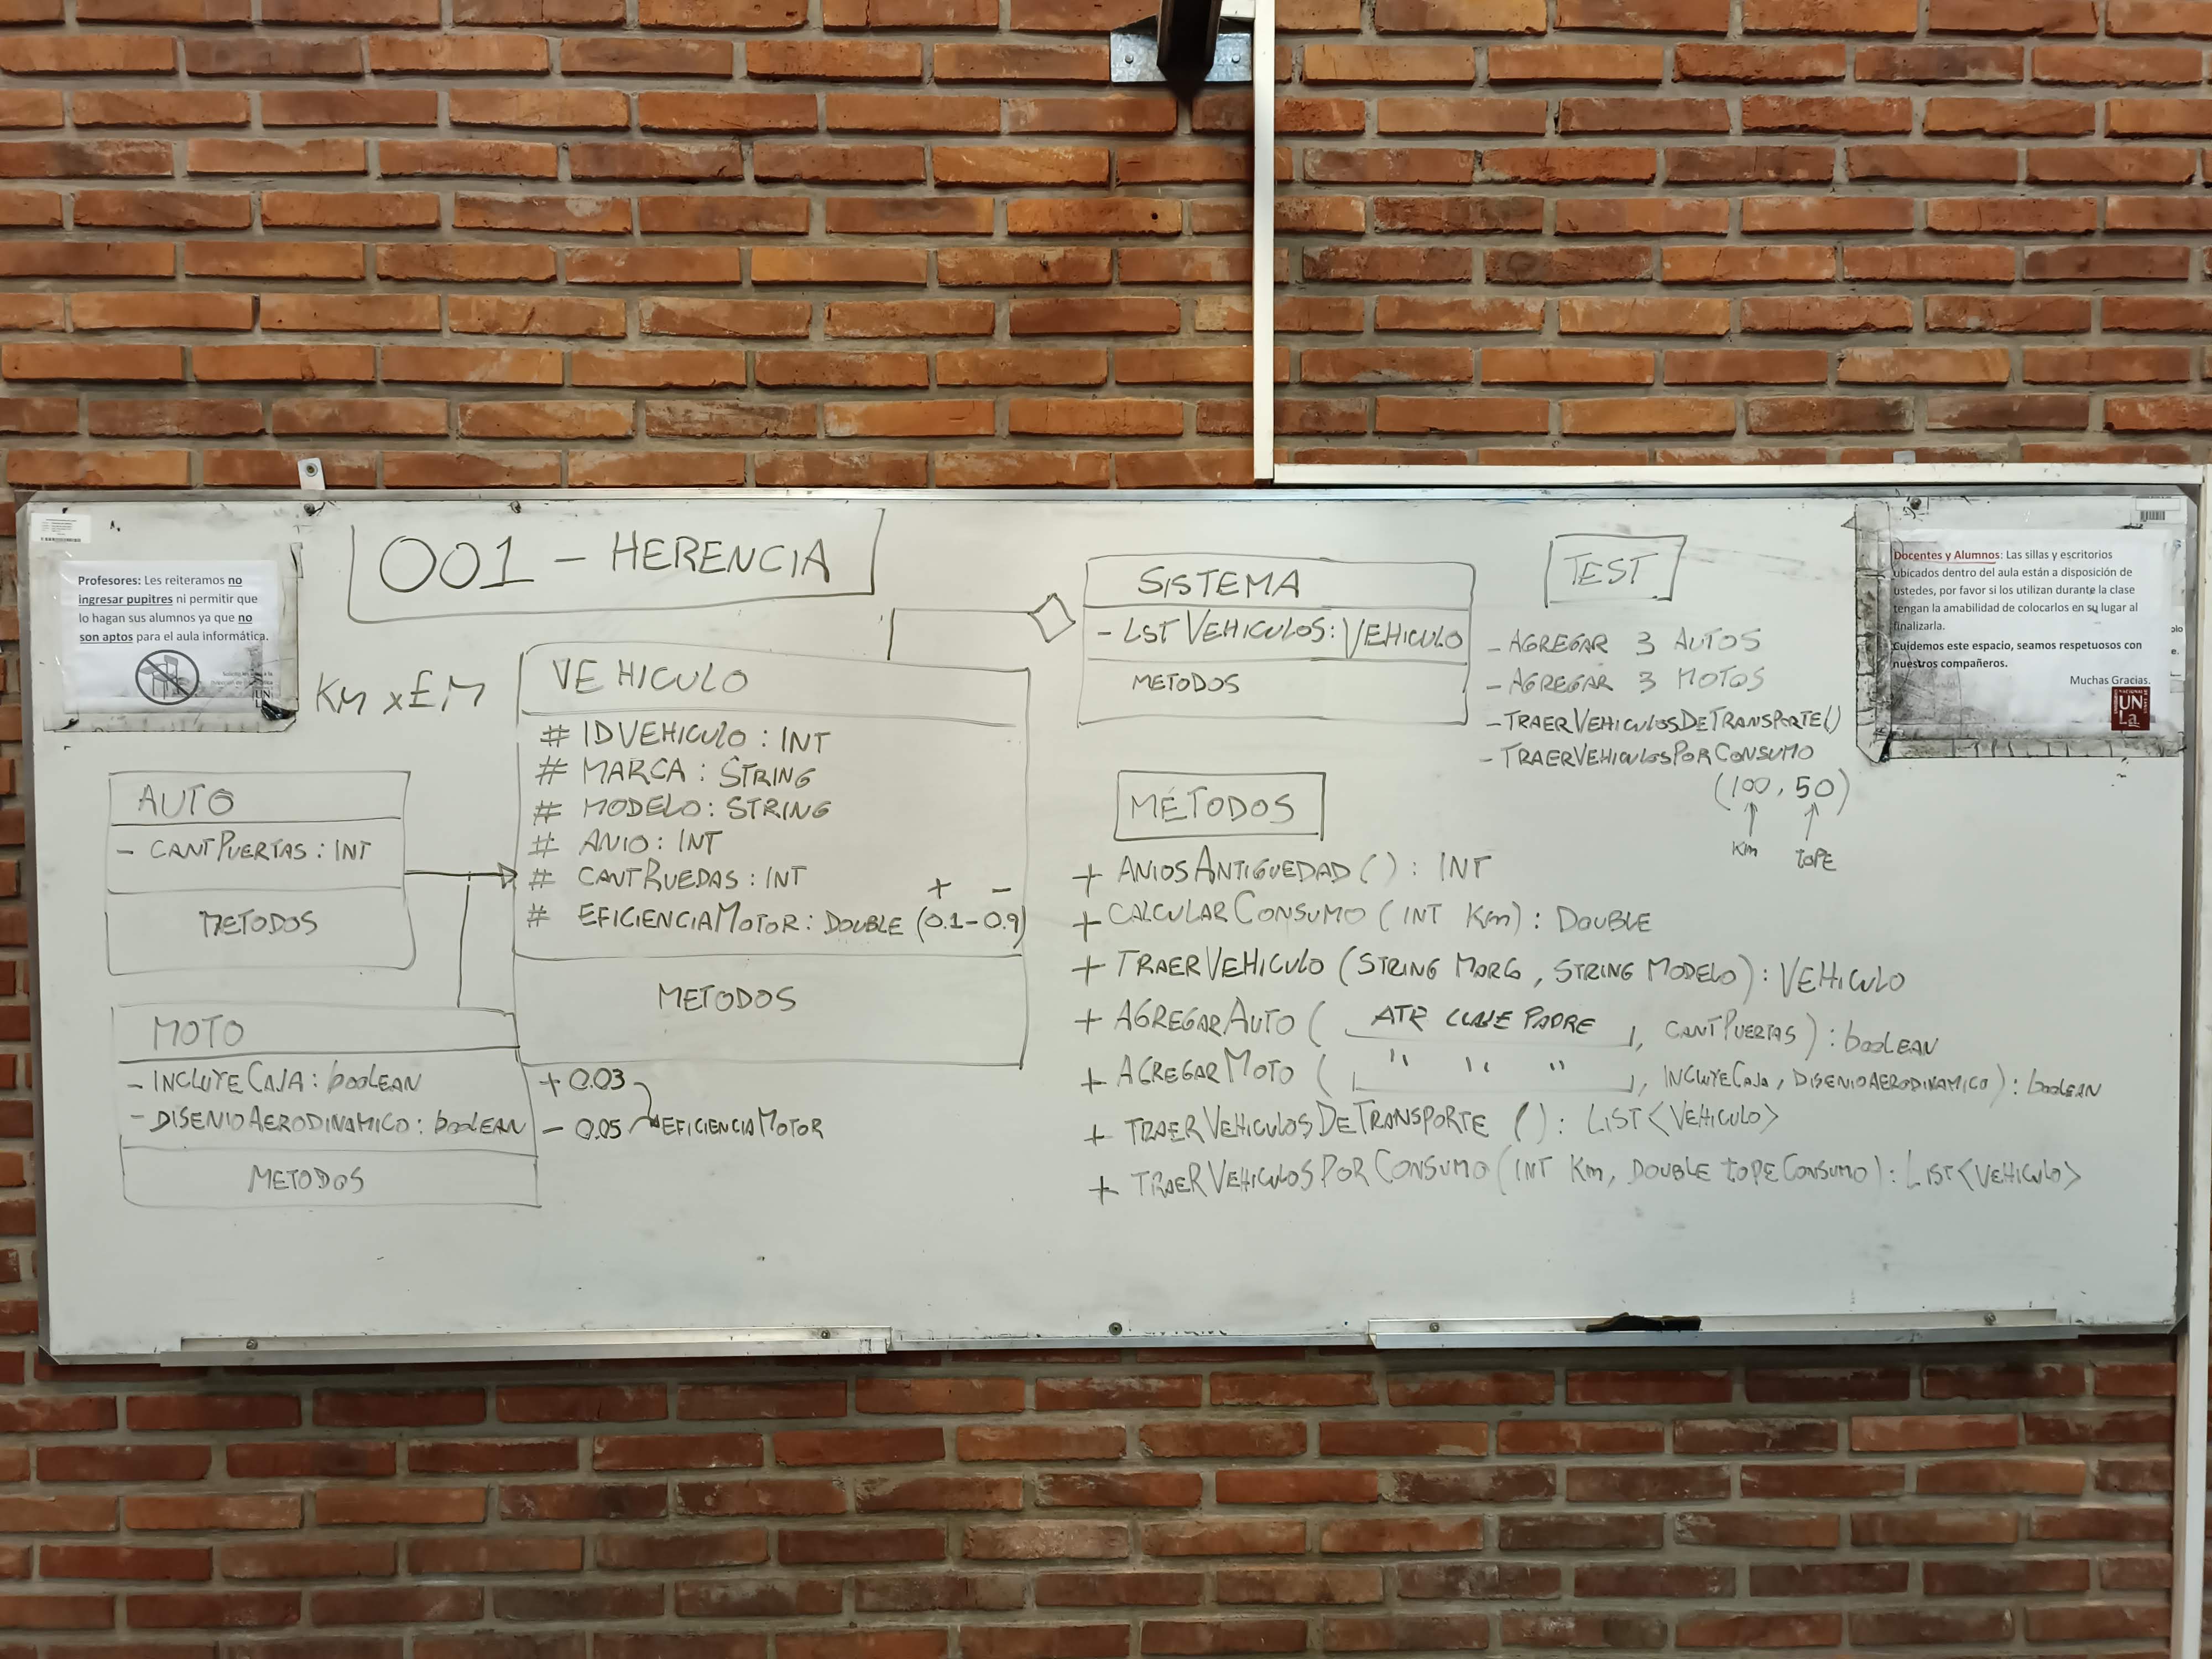 001 - HERENCIA
Profesores: Les reiteramos no
ingresar pupitres ni permitir que
lo hagan sus alumnos ya que no
son aptos para el aula informática.
UN
KM x E.M
AUTO
- CANTPUERTAS : INT
METODOS
MOTO
- INCLUYECAJA : boolEAN
- DISENIOAERODINAMICO : boolEAN
METODOS
+ 0.03
- 0.05 EFICIENCIAMOTOR
VEHICULO
# IDVEHICULO : INT
# MARCA : STRING
# MODELO : STRING
# ANIO : INT
# CANTRUEDAS : INT
+ -
# EFICIENCIAMOTOR : DOUBLE (0.1 - 0.9)
METODOS
SISTEMA
- LSTVEHICULOS : VEHICULO
METODOS
TEST
- AGREGAR 3 AUTOS
- AGREGAR 3 MOTOS
- TRAERVEHICULOSDETRANSPORTE()
- TRAERVEHICULOSPORCONSUMO
(100, 50)
Km tOPE
MÉTODOS
+ ANIOSANTIGUEDAD() : INT
+ CALCULARCONSUMO (INT Km) : DOUBLE
+ TRAERVEHICULO (STRING MARCA, STRING MODELO) : VEHICULO
+ AGREGARAUTO ( ATR CLASE PADRE , CANTPUERTAS) : boolEAN
+ AGREGARMOTO ( " " " , INCLUYECAJA, DISENIOAERODINAMICO) : boolEAN
+ TRAERVEHICULOSDETRANSPORTE () : LIST<VEHICULO>
+ TRAERVEHICULOSPORCONSUMO (INT Km, DOUBLE tOPECONSUMO) : LIST<VEHICULO>
Docentes y Alumnos: Las sillas y escritorios
ubicados dentro del aula están a disposición de
ustedes, por favor si los utilizan durante la clase
tengan la amabilidad de colocarlos en su lugar al
finalizarla.
Cuidemos este espacio, seamos respetuosos con
nuestros compañeros.
Muchas Gracias.
UN
La